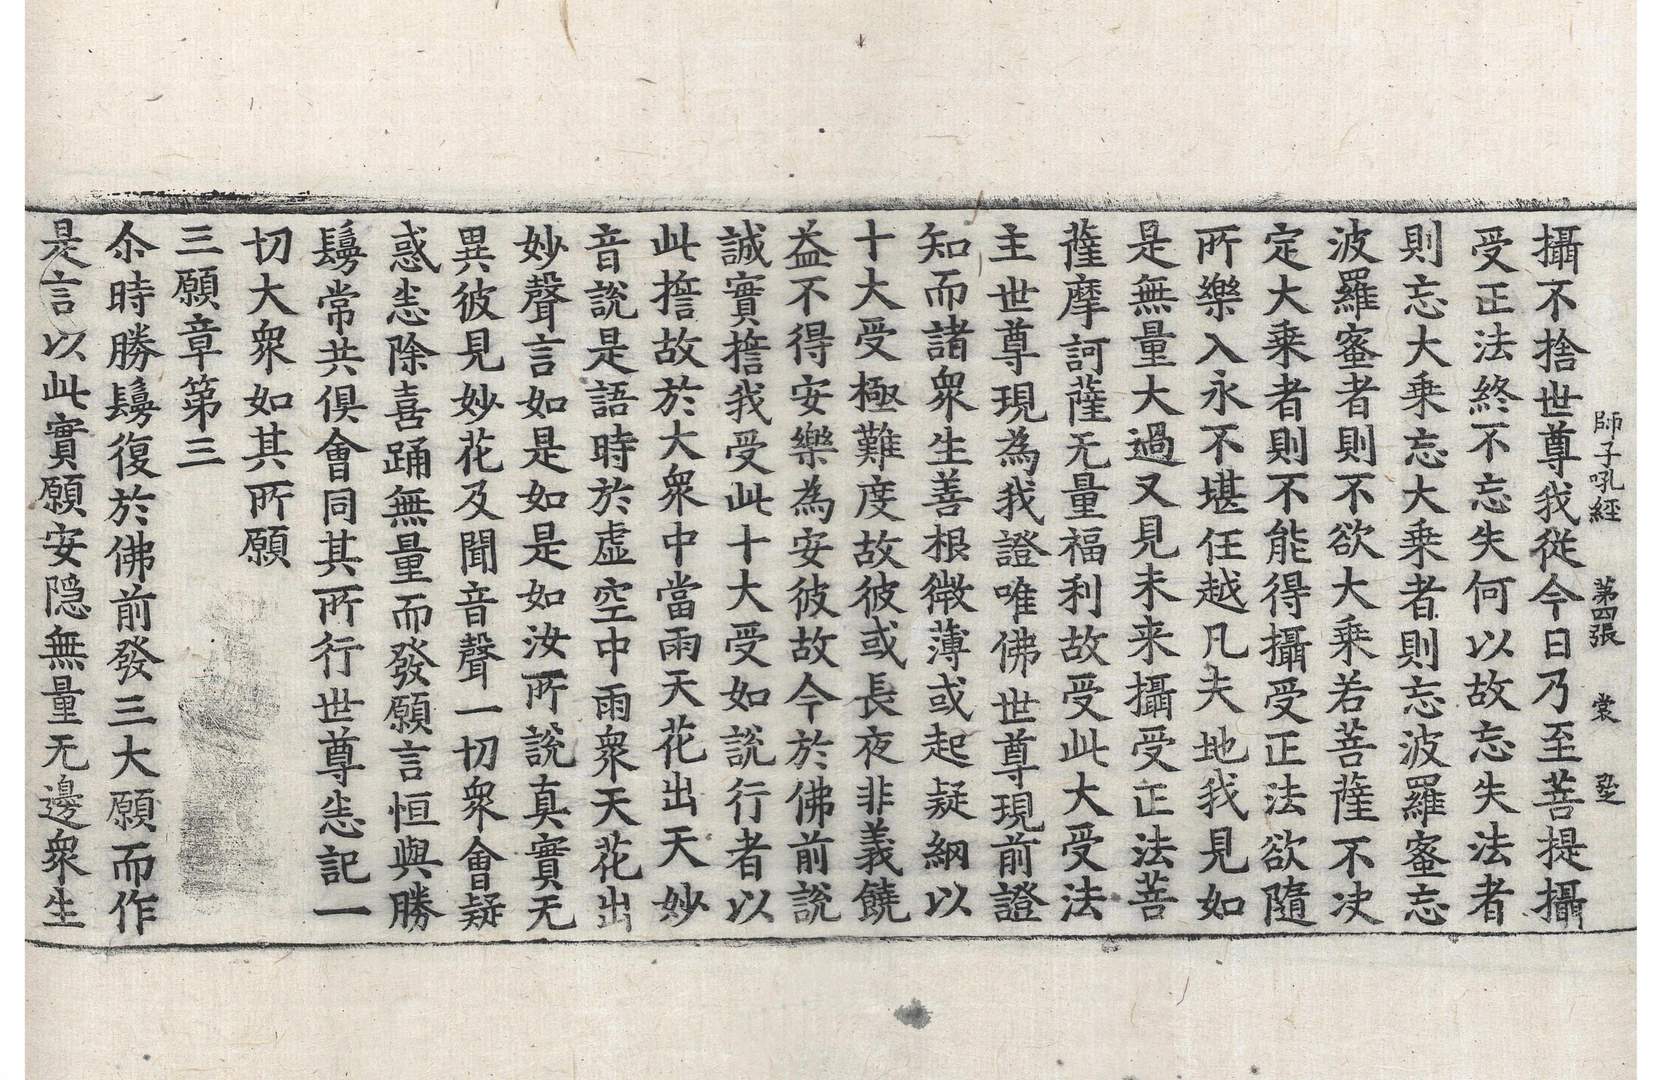 師子吼經 第四張 裳
攝不捨世尊我從今日乃至菩提攝
受正法終不忘失何以故忘失法者
則忘大乗忘大乗者則忘波羅蜜忘
波羅蜜者則不欲大乗若菩薩不决
定大乗者則不能得攝受正法欲隨
所樂入永不堪任越凡夫地我見如
是無量大過又見未来攝受正法菩
薩摩訶薩无量福利故受此大受法
主世尊現為我證唯佛世尊現前證
知而諸衆生善根微薄或起疑網以
十大受極難度故彼或長夜非義饒
益不得安樂為安彼故今於佛前說
誠實誓我受此十大受如說行者以
此誓故於大衆中當雨天花出天妙
音說是語時於虛空中雨衆天花出
妙聲言如是如是如汝所說真實无
異彼見妙花及聞音聲一切衆會疑
惑悉除喜踊無量而發願言恒與勝
鬘常共俱會同其所行世尊悉記一
切大衆如其所願
三願章第三
尒時勝鬘復於佛前發三大願而作
是言以此實願安隱無量无邊衆生